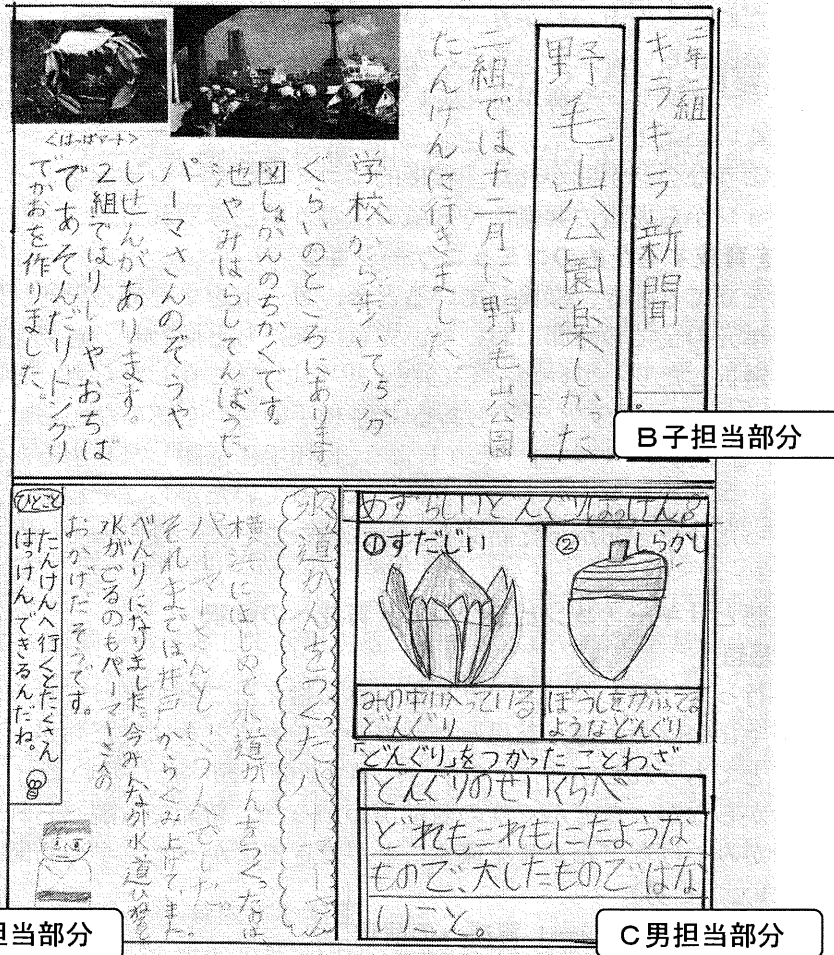 二年二組
キラキラ新聞
野毛山公園楽しかった
二組では十二月に野毛山公園
たんけんに行きました。
学校から歩いて15分
ぐらいのところにあります
図しょかんのちかくです。
池やみはらしてんぼうだい
パーマさんのぞうや
じしせんがあります。
2組ではリレーやおちば
であそんだりドングリ
でかおを作りました。
<はっぱアート>
B子担当部分
めずらしいどんぐりはっけん
①すだじい
みの中に入っている
どんぐり
②しらかし
ぼうしをかぶってる
ようなどんぐり
「どんぐり」をつかったことわざ
どんぐりのせいくらべ
どれもこれもにたような
もので、大したものではな
いこと。
C男担当部分
水道かんをつくったパーマーさん
横浜にはじめて水道かんをつくったのは、
パーマーさんという人でした。
それまでは、井戸からくみ上げて、また
べんりになりました。今みんなが水道ひねると
水がでるのもパーマーさんの
おかげだそうです。
ひとこと
たんけんへ行くとたくさん
はっけんできるんだね。
担当部分